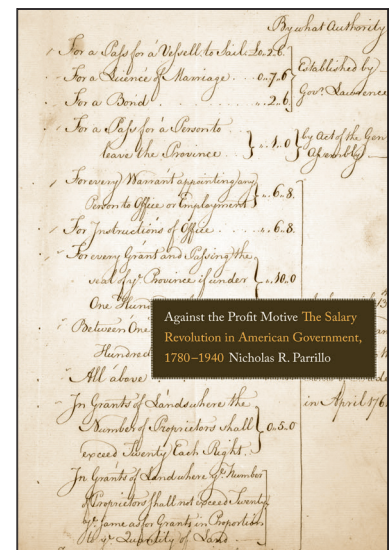 By what Authority
For a Pass for a Vessell to Sail. £0..2.6
For a Licence of Marriage . 0..7..6
For a Bond . . . . . 2..6
Established by
Gov.r Lawrence
For a Pass for a Person to
leave the Province . . 1..0
by Act of the Gen
Assembly
For every Warrant appointing any
Person to Office or Employment . 6..8
For Instructions of Office . . 6..8
For every Grant and Passing the
seal of ye Province if under . 10..0
One
Between One
Hundred
All above
in April 176
In Grants of Lands where the
Number of Proprietors shall 0..5..0
exceed Twenty Each Right.
In Grants of Land where ye Number
of Proprietors shall not exceed Twenty
ye same as for Grants in Proportion
to ye Quantity of Land
Against the Profit Motive The Salary
Revolution in American Government,
1780–1940 Nicholas R. Parrillo